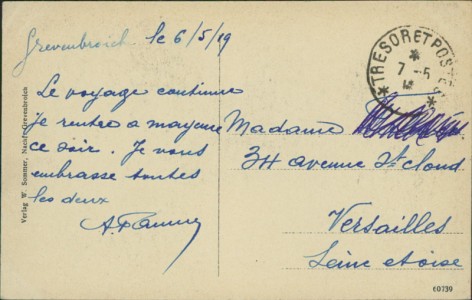 Grevenbroich le 6/5/19
Le voyage continue
je rentre a mayence
ce soir. Je vous
embrasse toutes
les deux
TRESOR ET POSTES
7 -5
Madame
34 avenue St cloud
Versailles
Seine et oise
Verlag W. Sommer, Nachf. Grevenbroich
60739